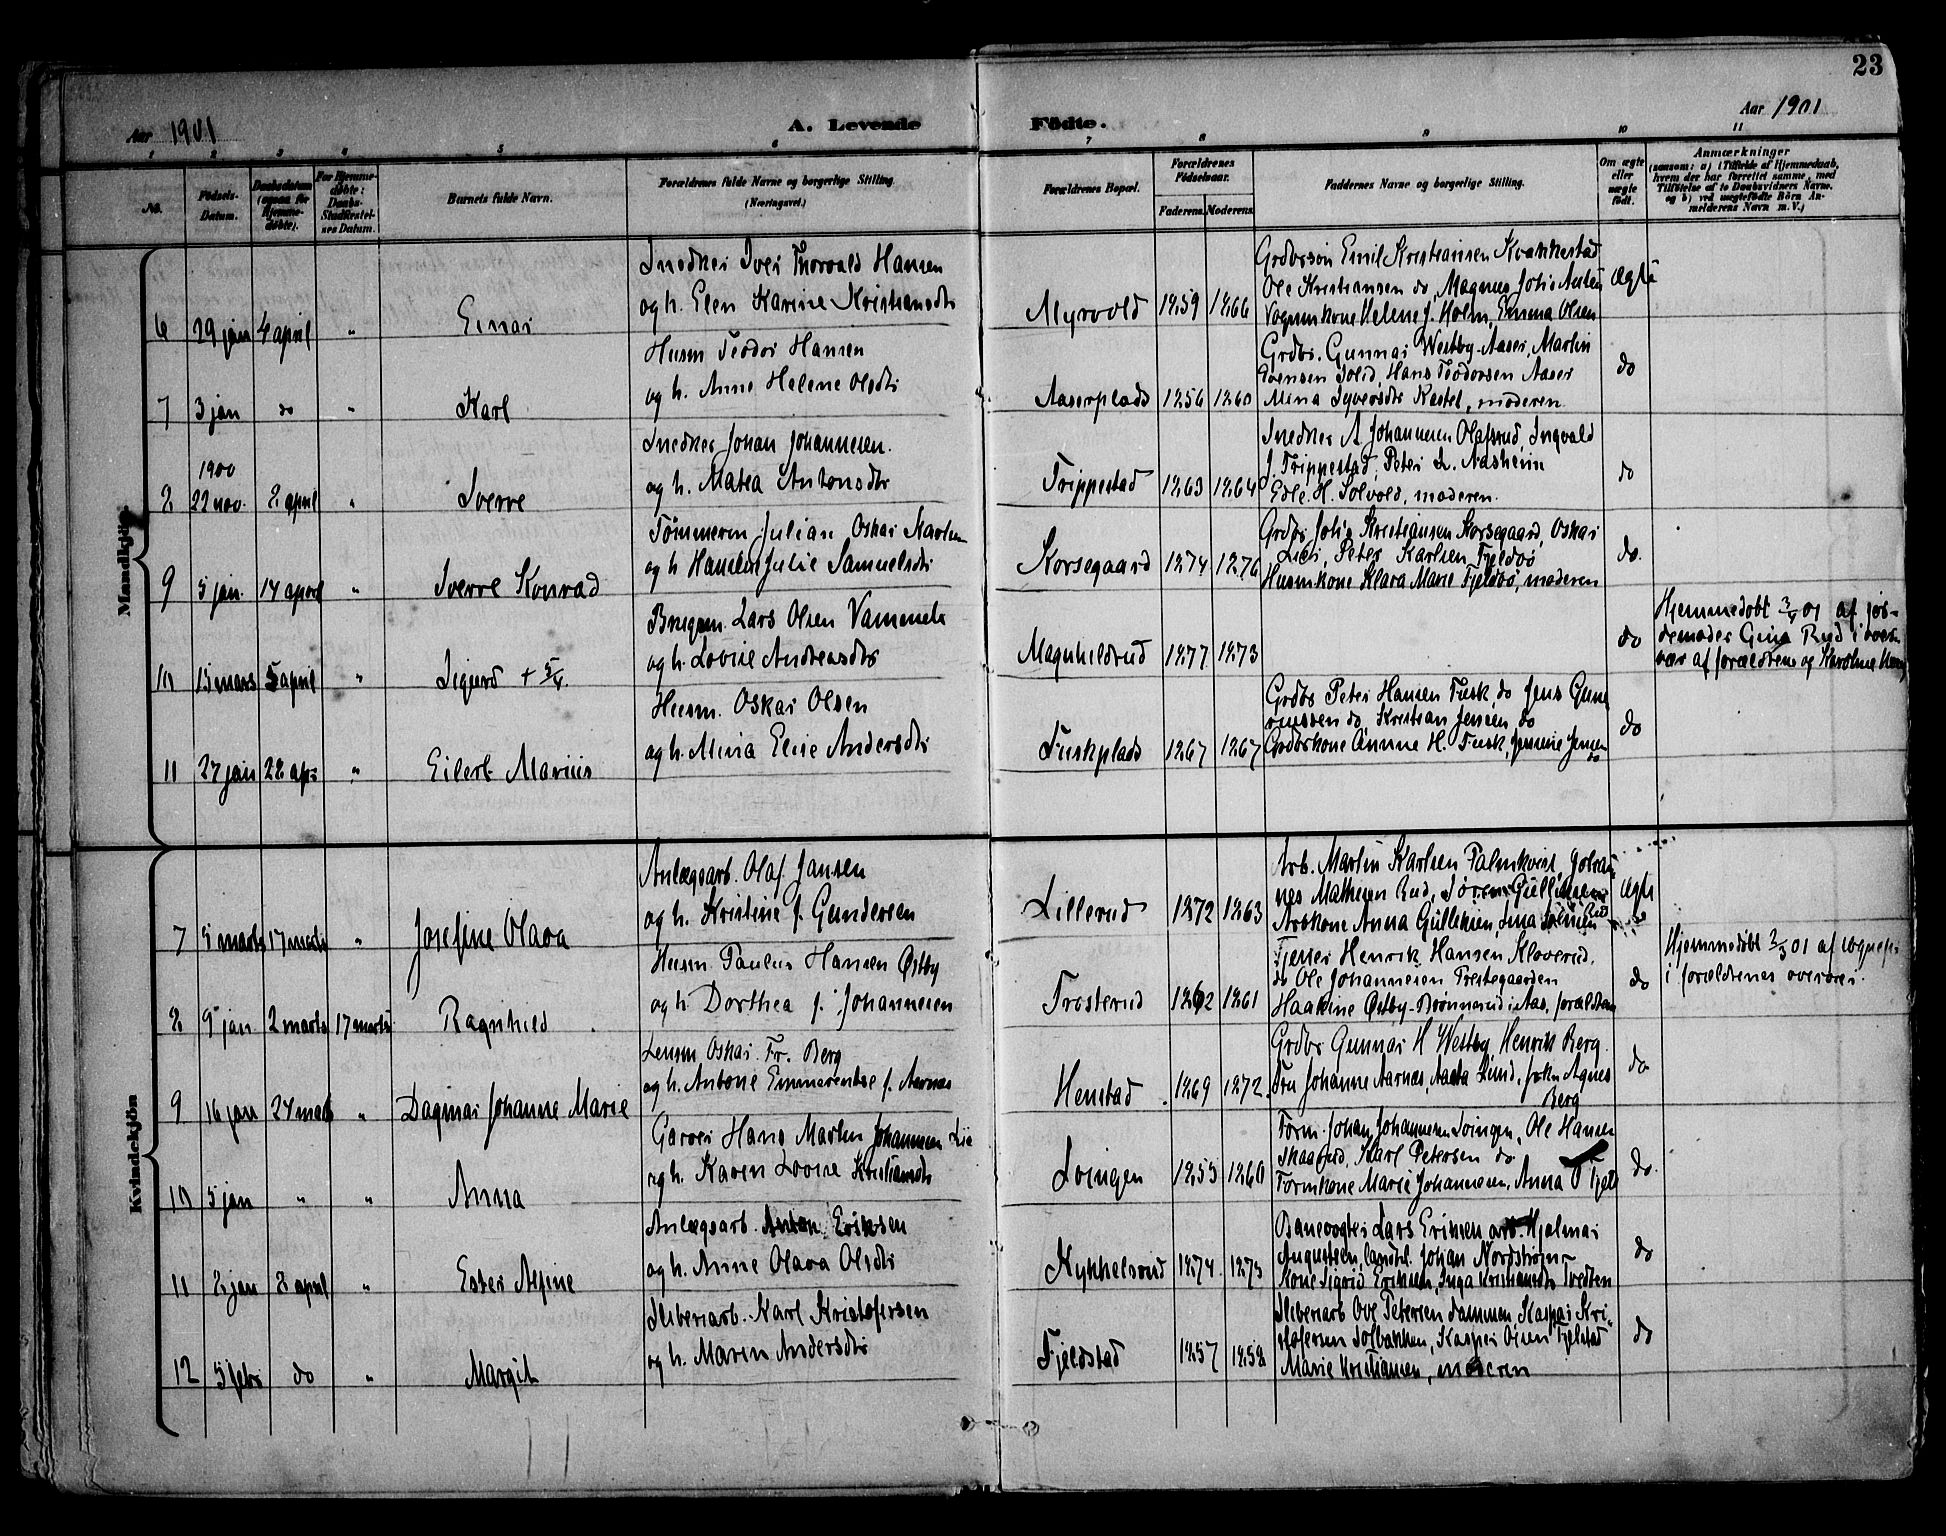 23
Aar 1901
A. Levende
Födte.
Aar 1901
1 2 3 4 5 6 7 8 9 10 11
No.
Födsels-Datum.
Daabsdatum (ogsaa for Hjemme-döbte).
For Hjemme-döbte: Daabs-Stadfæstelses Datum.
Barnets fulde Navn.
Forældrenes fulde Navne og borgerlige Stilling. (Næringsvei.)
Forældrenes Bopæl.
Forældrenes Födselsaar.
Faderens. Moderens.
Faddernes Navne og borgerlige Stilling.
Om ægte eller uægte födt.
Anmærkninger
(saasom: a) i Tilfælde af Hjemmedaab, hvem der har forrettet samme, med Tilföielse af to Daabsvidners Navne, og b) ved uægtefödte Börn Anmelderens Navn m. V.)
Mandkjön.
6 29 jan 4 april " Einar
Snedker Iver Thorvald Hansen
og h. Elen Karine Kristiansdtr
Myrvold 1859 1866
Grdbrsön Emil Kristiansen Krakkestad
Ole Kristiansen do, Magnus Johs
Vognmkone Helene J. Holm, Emma Olsen
Ægte
7 3 jan do " Karl
Husm Teodor Hansen
og h. Anne Helene Olsdtr
Aaserplads 1856 1860
Grdbr. Gunnar Westby-Aaser, Martin
Svensen Solid, Hans Teodorsen Aaser
Mina Syversdtr Kastet, moderen
do
8 1900 22 nov. 8 april " Sverre
Snedker Johan Johannesen
og h. Matea Antonsdtr
Trippestad 1863 1864
Snedker A Johannesen Olafsrud, Ingvald
J. Trippestad, Peter L. Aasheim
Edle H. Solvold, moderen.
do
9 5 jan. 14 april " Sverre Konrad
Tömmerm Julian Oskar Martin
og h. Hansen Julie Samuelsdtr
Korsegaard 1874 1876
Grdbr Johs Kristiansen Korsegaard, Oskar
Lier, Peter Karlsen Fjeldbö
Husmkone Klara Marie Fjeldbö, moderen
do.
10 15 mars 5 april " Sigurd + 5/4.
Brugsm. Lars Olsen Vammeli
og h. Lovise Andreasdtr
Magnhildrud 1877 1873
do
Hjemmedöbt 3/4 01 af jor-
demoder Gina Rud i over-
vær af forældrene og Karoline
11 27 jan 28 apr " Eilert Marius
Husm. Oskar Olsen
og h. Mina Elise Andersdtr
Tuskplads 1867 1867
Grdbr Peter Hansen Tusk, do Jens Gune
riussen do, Kristian Jensen do
Grdbrkone Anne H. Tusk, Jensine Jensen
do
do
Kvindekjön
7 5 marts 17 marts " Josefine Olava
Anlægsarb. Olaf Jansen
og h. Kristine f. Gundersen
Lillerud 1872 1863
Arb. Martin Karlsen Palmkvist, Johan
nes Mathisen Rud, Sören Gulliksen
Rud
Arbkone Anna Gulliksen,
Ægte
8 9 jan 2 marts 17 marts Ragnhild
Husm Paulus Hansen Østby
og h. Dorthea f. Johannesen
Frosterud 1862 1861
Tjener Henrik Hansen Kloverud,
do Ole Johannesen Prestegaarden
Haakine Østby-Brönnerud i Aas, forældrene
do
Hjemmedöbt 2/3 01 af sognepr
i forældrenes overvær.
9 16 jan 24 mars " Dagmar Johanne Marie
Lensm Oskar Fr. Berg
og h. Antone Emmerentse f. Aarnæs
Henstad 1869 1872.
Grdbr Gunnar H Westby Henrik Berg
Fru Johanne Aarnæs, Aasta Lund, frkn Agnes
Berg
do
10 5 jan " " Anna
Garver Hans Martin Johannesen Lie
og h. Karen Lovise Kristiansdtr
Loingen 1855 1860
Form. Johan Johannesen Loingen, Ole Hansen
Skaarud, Karl Petersen do
Formkone Marie Johannesen, Anna O Fjeld
do.
11 8 jan 8 april " Ester Alfine
Anlægsarb. Anton Eriksen
og h. Anne Olava Olsdtr
Kykkelsrud 1874. 1875
Banevogter Lars Eriksen arb. Hjalmar
Augustsen, landh. Johan Nordström
Kone Sigrid Eriksen, Inga Kristiansdtr Tvedten
do
12 5 febr do " Margit
Sliberiarb. Karl Kristofersen
og h. Maren Andersdtr
Fjeldstad 1857 1858
Sliberiarb Ove Petersen Dammen Kasper Kri-
stofersen Solbakken, Kasper Olsen Fjelstad
Marie Kristiansen, moderen
do